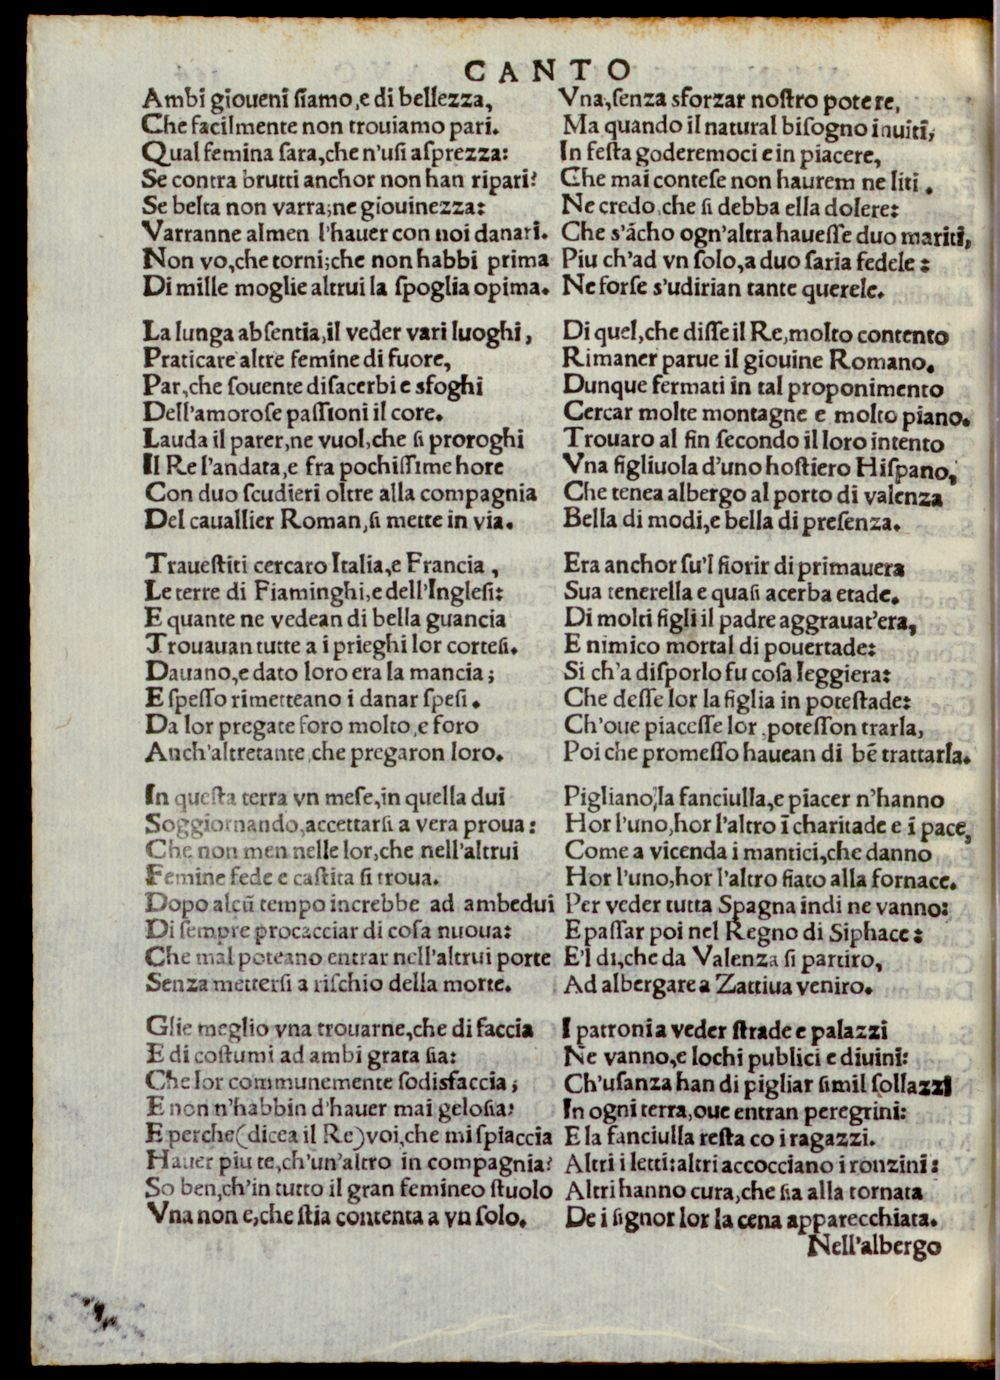 CANTO
Ambi gioueni siamo, e di bellezza,
Che facilmente non trouiamo pari.
Qual femina sara, che n'usi asprezza:
Se contra brutti anchor non han ripari?
Se belta non varra; ne giouinezza:
Varranne almen l'hauer con noi danari.
Non vo, che torni; che non habbi prima
Di mille moglie altrui la spoglia opima.
La lunga absentia, il veder vari luoghi,
Praticare altre femine di fuore,
Par, che souente disacerbi e sfoghi
Dell'amorose passioni il core.
Lauda il parer, ne vuol, che si proroghi
Il Re l'andata, e fra pochissime hore
Con duo scudieri oltre alla compagnia
Del cauallier Roman, si mette in via.
Trauestiti cercaro Italia, e Francia,
Le terre di Fiaminghi, e dell'Inglesi:
E quante ne vedean di bella guancia
Trouauan tutte a i prieghi lor cortesi.
Dauano, e dato loro era la mancia;
E spesso rimetteano i danar spesi.
Da lor pregate foro molto, e foro
Anch'altretante, che pregaron loro.
In questa terra vn mese, in quella dui
Soggiornando, accettarsi a vera proua:
Che non men nelle lor, che nell'altrui
Femine fede e castita si troua.
Dopo alcũ tempo increbbe ad ambedui
Di sempre procacciar di cosa nuoua:
Che mal poteano entrar nell'altrui porte
Senza mettersi a rischio della morte.
Glie meglio vna trouarne, che di faccia
E di costumi ad ambi grata sia:
Che lor communemente sodisfaccia;
E non n'habbin d'hauer mai gelosia?
E perche (dicea il Re) voi, che mi spiaccia
Hauer piu te, ch'un'altro in compagnia?
So ben, ch'in tutto il gran femineo stuolo
Vna non e, che stia contenta a vn solo.
Vna, senza sforzar nostro potere,
Ma quando il natural bisogno inuiti,
In festa goderemoci e in piacere,
Che mai contese non haurem ne liti.
Ne credo, che si debba ella dolere:
Che s'ãcho ogn'altra hauesse duo mariti,
Piu ch'ad vn solo, a duo saria fedele:
Ne forse s'udirian tante querele.
Di quel, che disse il Re, molto contento
Rimaner parue il giouine Romano.
Dunque fermati in tal proponimento
Cercar molte montagne e molto piano.
Trouaro al fin secondo il loro intento
Vna figliuola d'uno hostiero Hispano,
Che tenea albergo al porto di valenza
Bella di modi, e bella di presenza.
Era anchor su'l fiorir di primauera
Sua tenerella e quasi acerba etade.
Di molti figli il padre aggrauat'era,
E nimico mortal di pouertade:
Si ch'a disporlo fu cosa leggiera:
Che desse lor la figlia in potestade:
Ch'oue piacesse lor, potesson trarla,
Poi che promesso hauean di bẽ trattarla.
Pigliano, la fanciulla, e piacer n'hanno
Hor l'uno, hor l'altro ĩ charitade e ĩ pace,
Come a vicenda i mantici, che danno
Hor l'uno, hor l'altro fiato alla fornace.
Per veder tutta Spagna indi ne vanno:
E passar poi nel Regno di Siphace:
E'l di, che da Valenza si partiro,
Ad albergare a Zattiua veniro.
I patroni a veder strade e palazzi
Ne vanno, e lochi publici e diuini:
Ch'usanza han di pigliar simil sollazzi
In ogni terra, oue entran peregrini:
E la fanciulla resta co i ragazzi.
Altri i letti: altri accocciano i ronzini:
Altri hanno cura, che sia alla tornata
De i signor lor la cena apparecchiata.
Nell'albergo